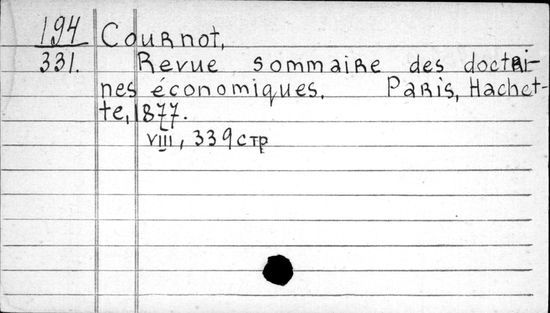 194 Cournot,
331. Revue sommaire des doctri-
nes économiques. Paris, Hachet-
te, 1877.
VIII, 339 стр